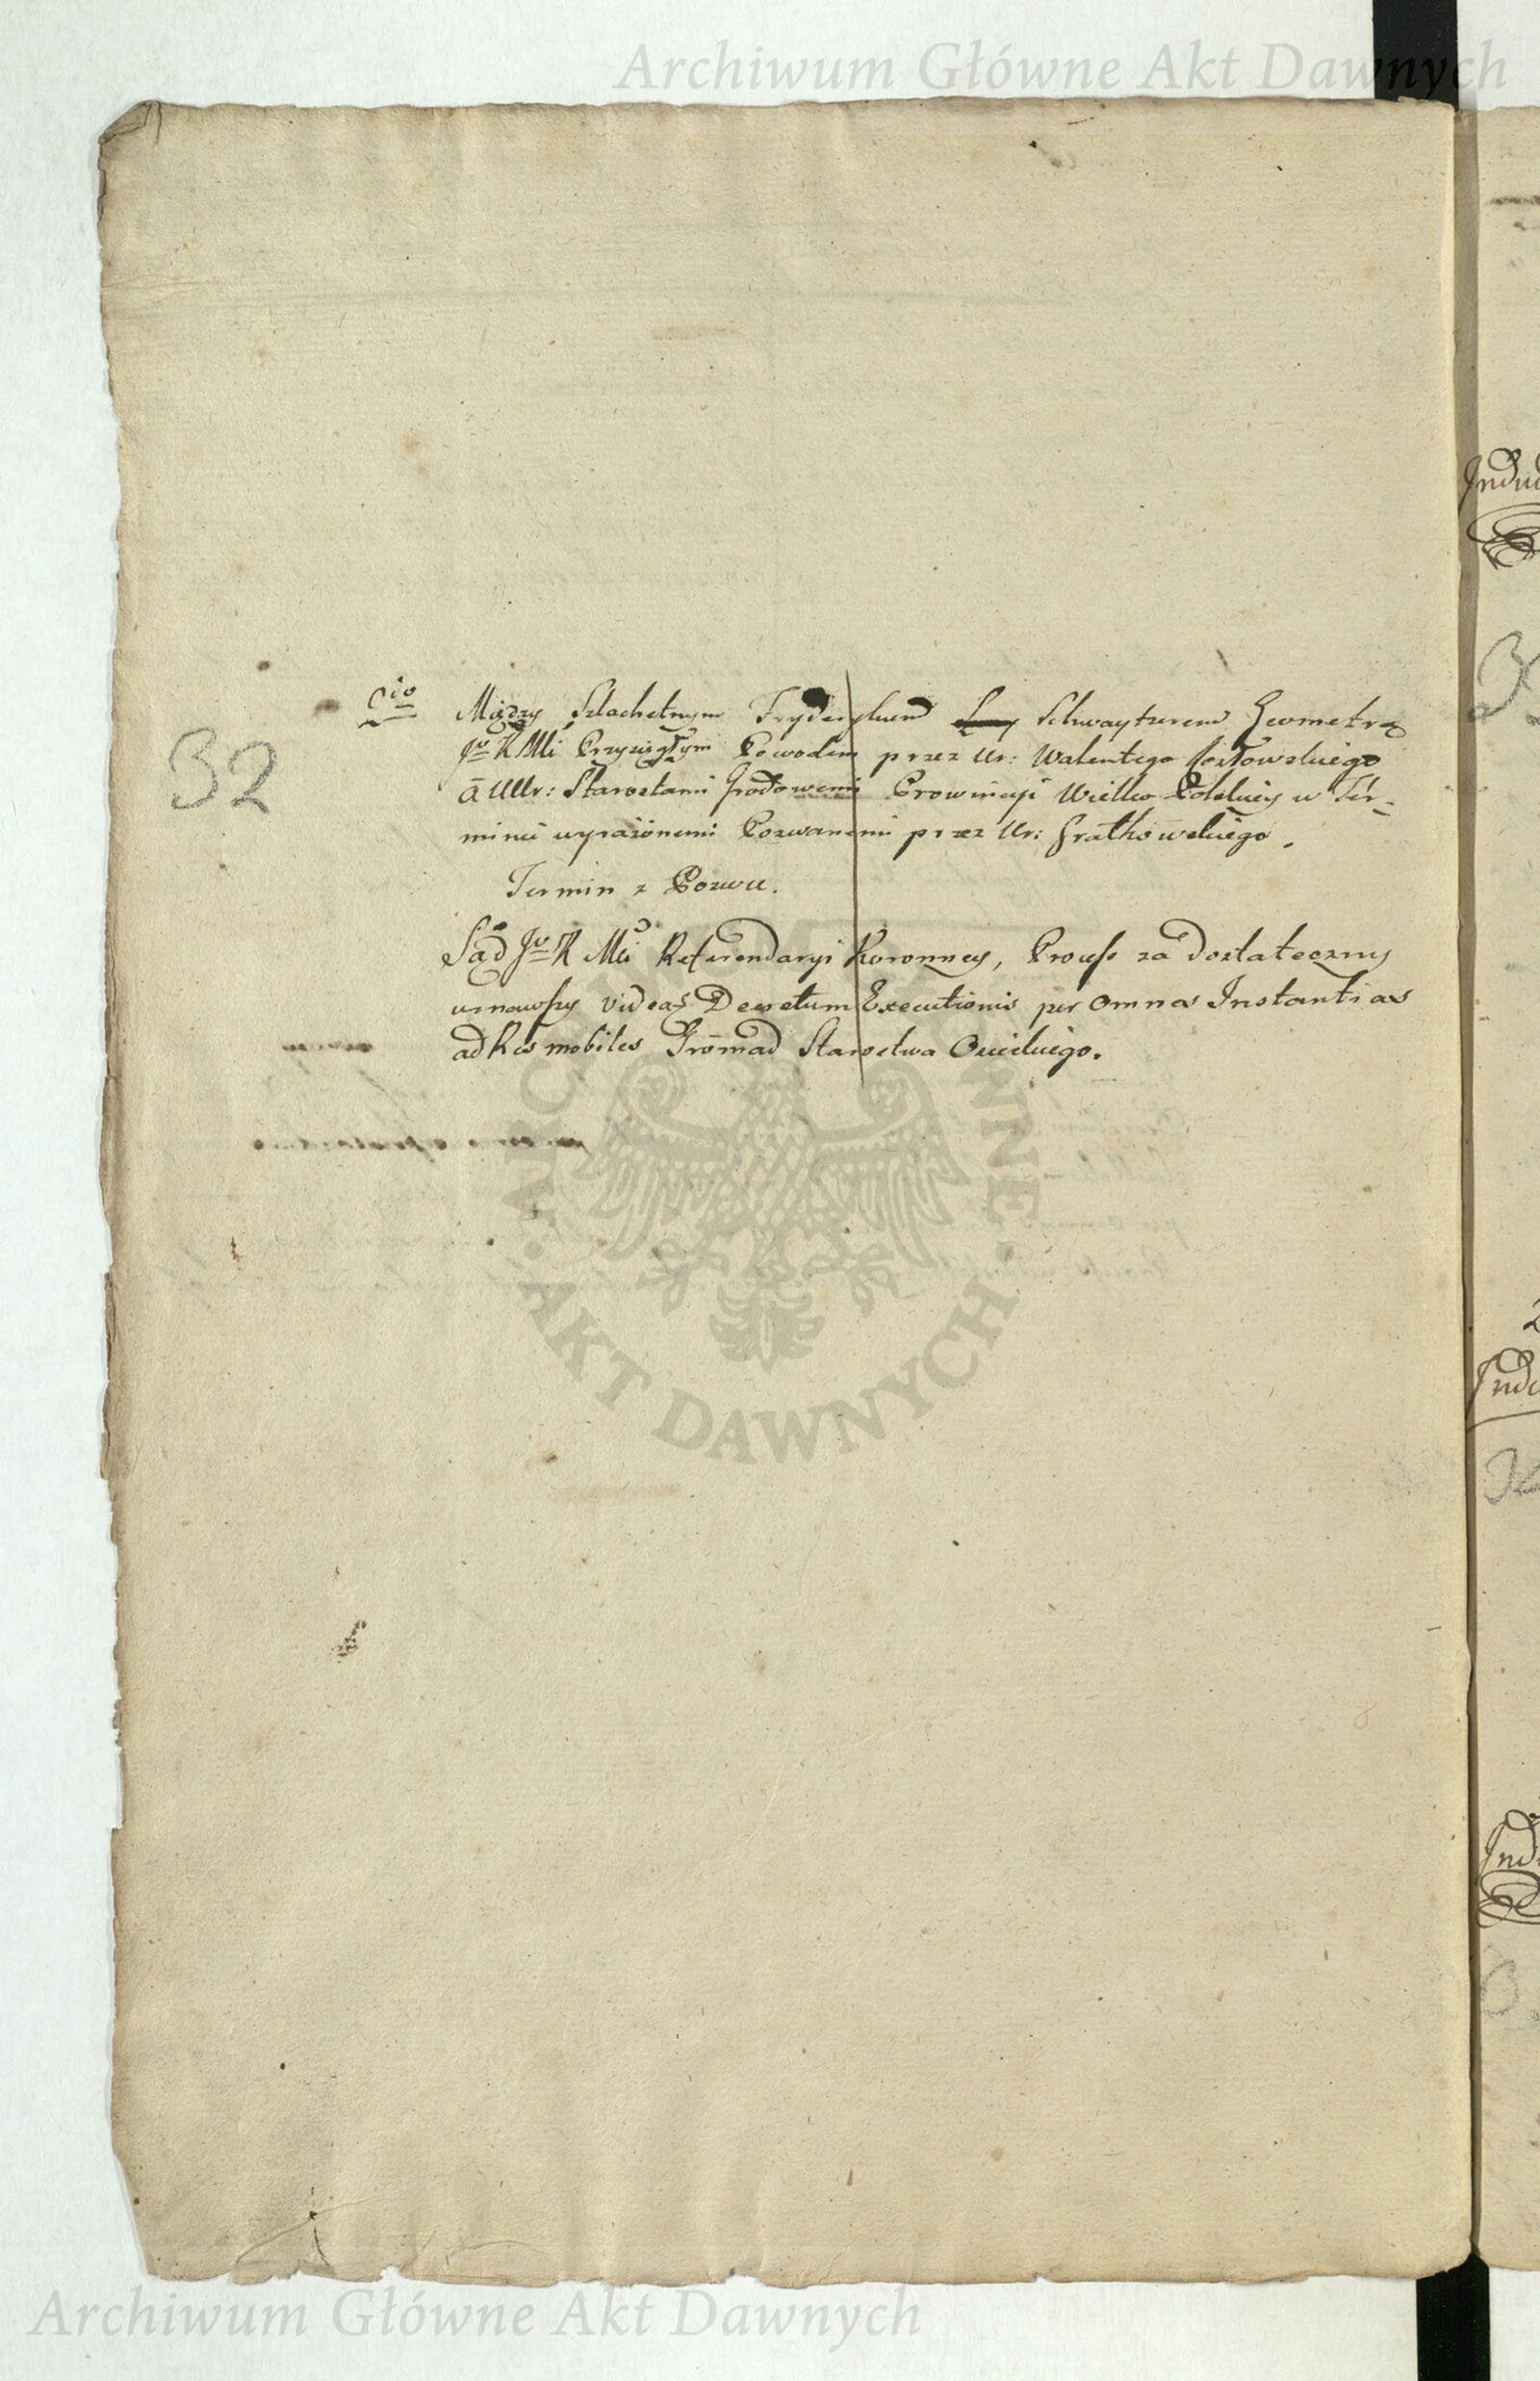 Archiwum Główne Akt Dawnych
32
Między Szlachetnym Fryderykiem Schwaytzerem Geometrą
Jº K Mci Przysięgłym Powodem przez Ur: Walentego Kozłowskiego
à UUr: Starostami Grodowemi Prowincyi Wielko Polskiey w Ter-
minie wyrażonemi Pozwanemi przez Ur: Frątkowskiego.
Termin z Pozwu.
Sąd Jº K Mci Referendaryi Koronney, Process za Dostateczny
uznawszy videat Decretum Executionis per omnes Instantias
ad Res mobiles Gromad Starostwa
ARCHIWUM GŁÓWNE · AKT DAWNYCH ·
Archiwum Główne Akt Dawnych